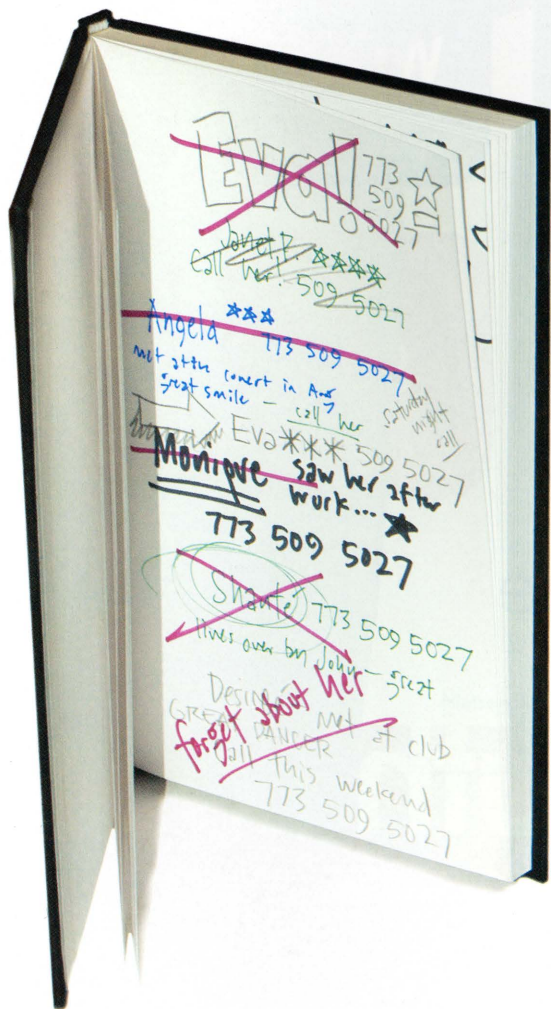 Eva!
773
509
5027
Janet P. ****
call her! 509 5027
Angela ***
773 509 5027
met at the concert in
great smile – call her
saturday
night
call
Eva*** 509 5027
Monique saw her after
work... ★
773 509 5027
Shanté 773 509 5027
lives over by John – great
forget about her
GREAT DANCER met at club
call this weekend
773 509 5027